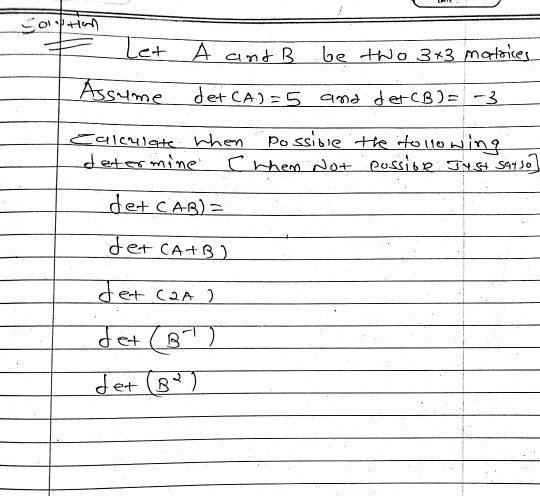 Solution
Let A and B be two 3x3 matrices
Assume det(A)=5 and det(B)= -3
Calculate when possible the following
determine [when Not possible Just say so]
det(AB)=
det(A+B)
det(2A)
det(B⁻¹)
det(B²)